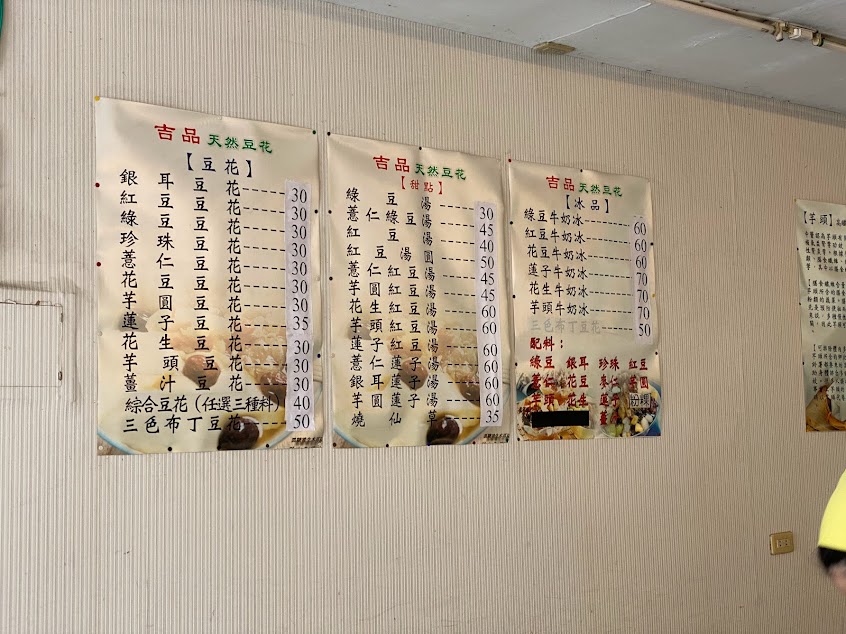 吉品 天然豆花
【豆花】
銀耳豆花-----30
紅豆豆花-----30
綠豆豆花-----30
珍珠豆花-----30
薏仁豆花-----30
花豆豆花-----30
芋圓豆花-----30
蓮子豆花-----35
花生豆花-----30
芋頭豆花-----30
薑汁豆花-----30
綜合豆花(任選三種料) 40
三色布丁豆花-----50
吉品 天然豆花
【甜點】
綠豆湯-----30
薏仁綠豆湯-----45
紅豆湯-----40
紅豆湯圓-----50
薏仁紅豆湯-----45
芋圓紅豆湯-----45
花生紅豆湯-----60
芋頭紅豆湯-----60
蓮子湯-----60
薏仁蓮子湯-----60
銀耳蓮子湯-----60
芋圓蓮子湯-----60
燒仙草-----35
吉品 天然豆花
【冰品】
綠豆牛奶冰-----60
紅豆牛奶冰-----60
花豆牛奶冰-----60
蓮子牛奶冰-----70
花生牛奶冰-----70
芋頭牛奶冰-----70
三色布丁豆花-----50
配料：
綠豆 銀耳 珍珠 紅豆
薏仁 花豆 芋圓
芋頭 花生 蓮子 粉粿
【芋頭】